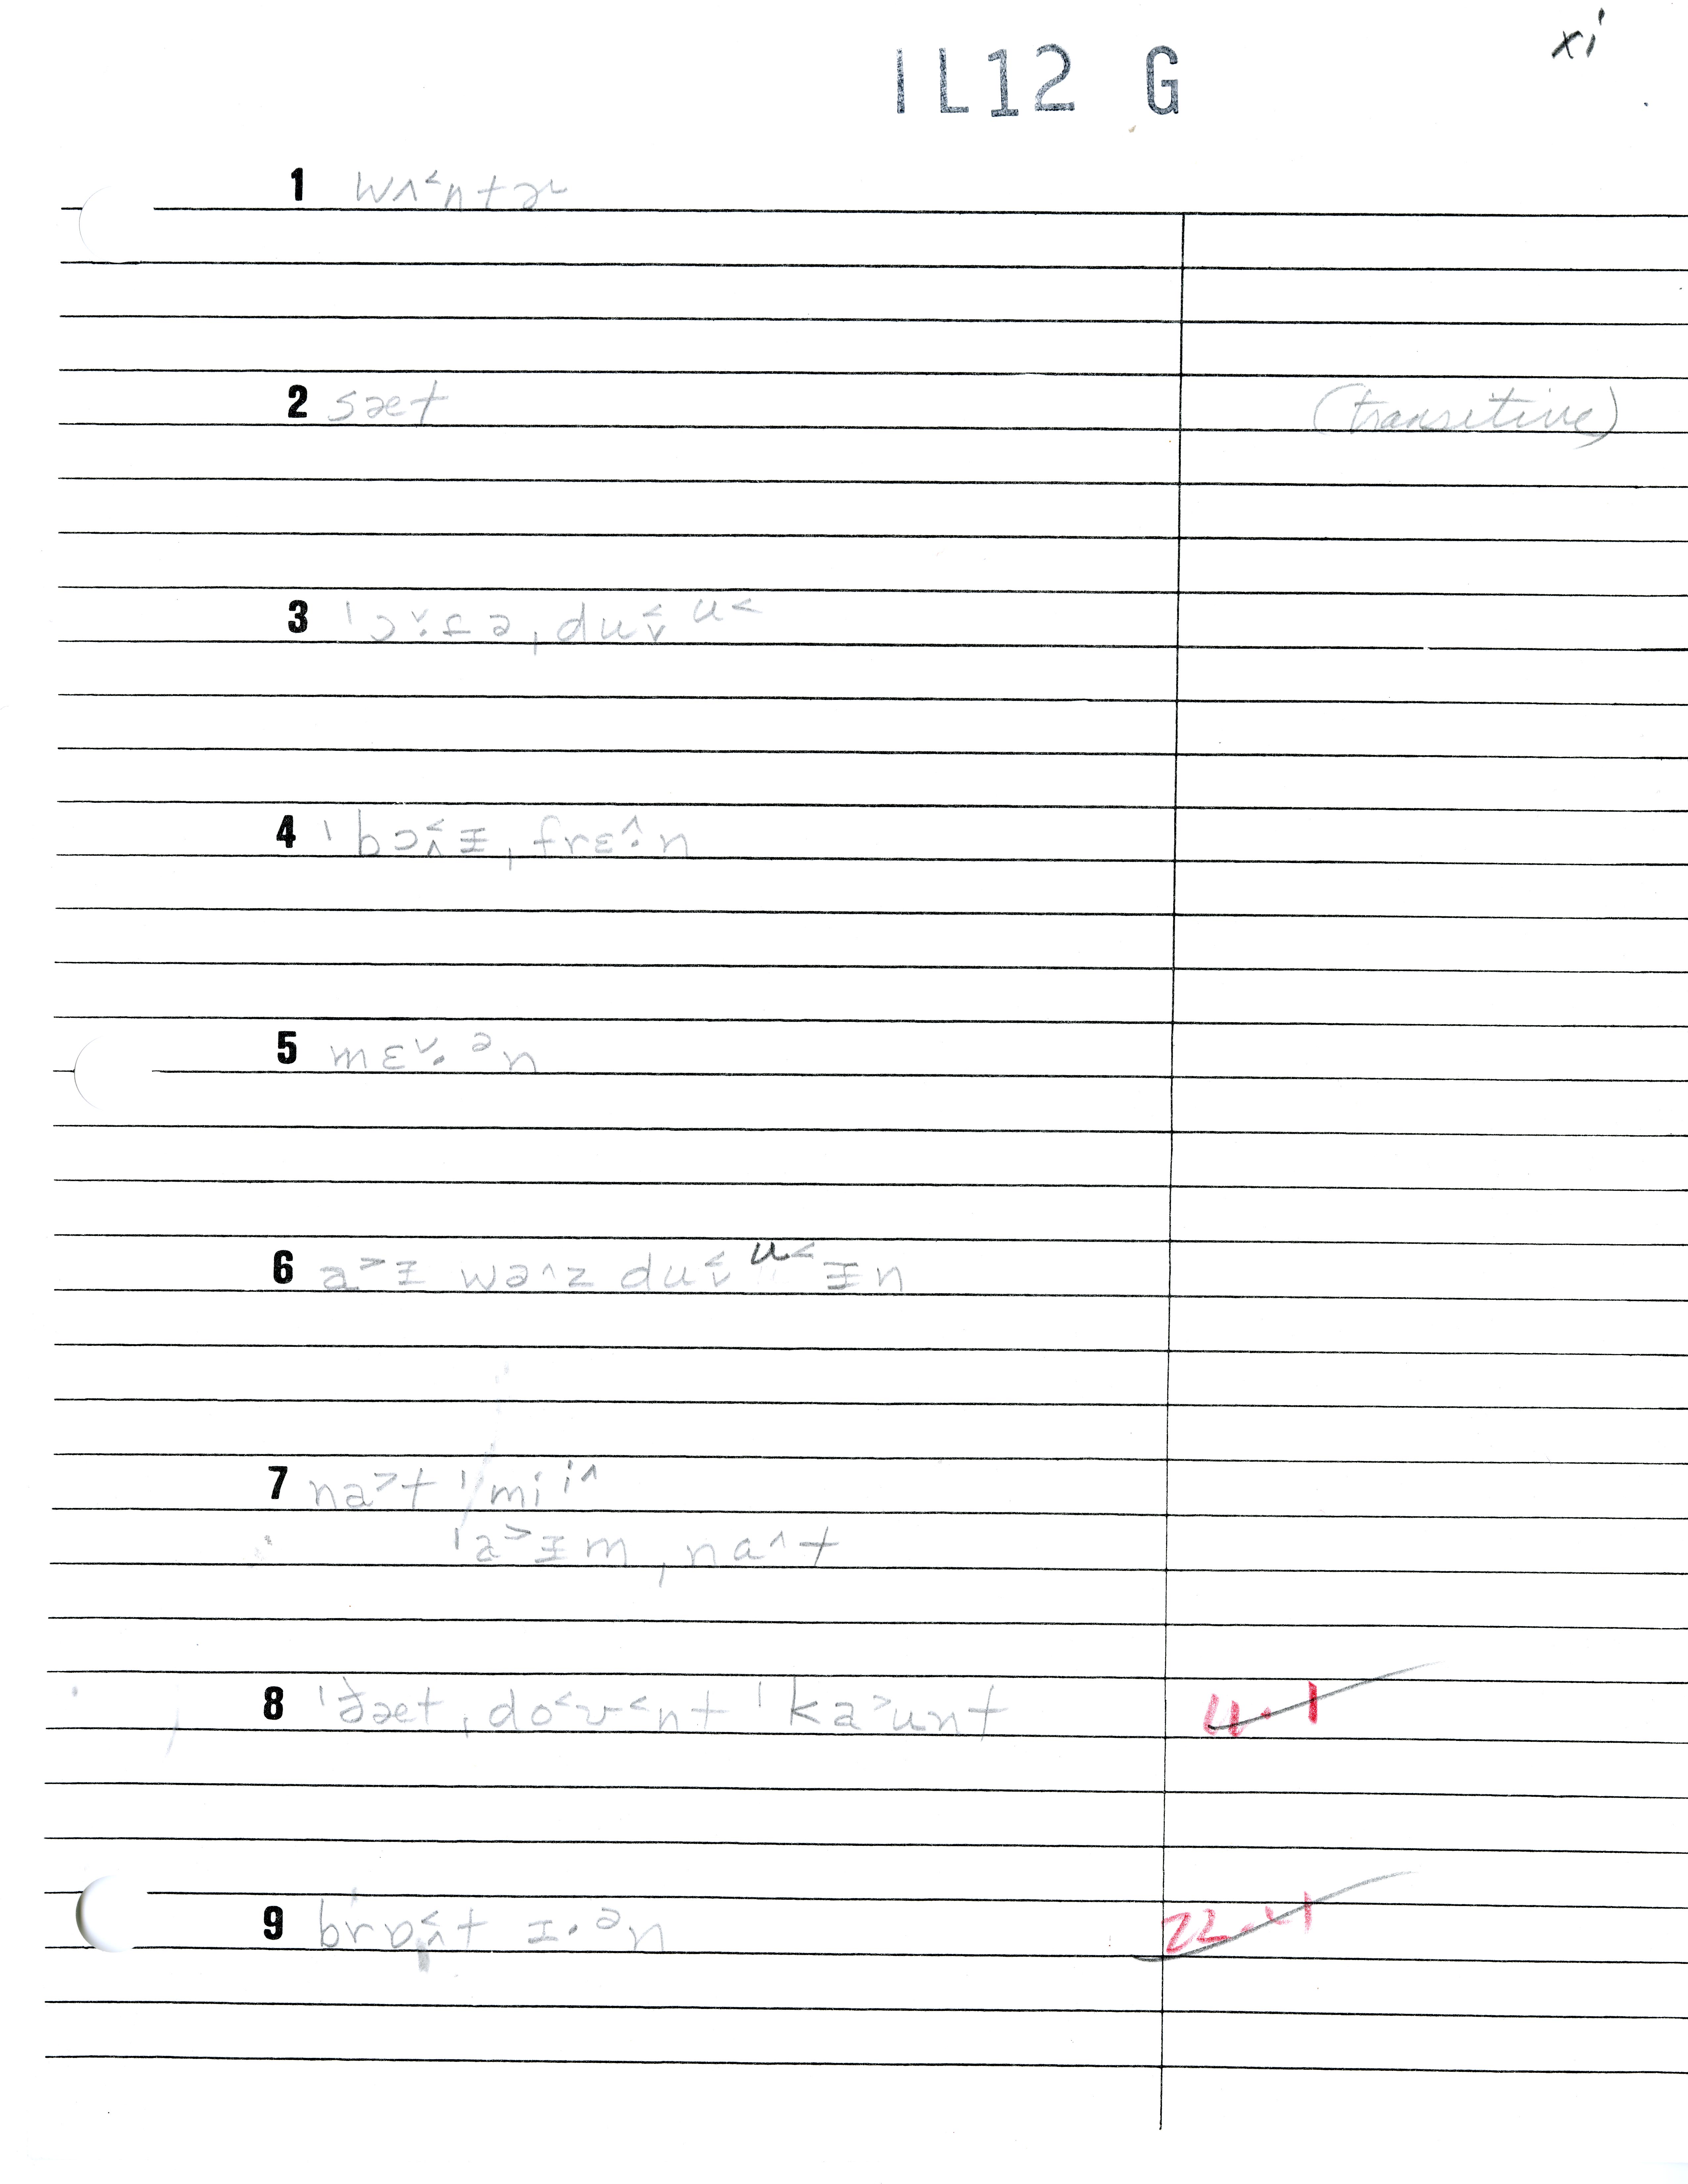 xi
IL12 G
1 wʌ˂ntɚ
2 sæt (transitive)
3 ˈɔ˅·fə ˌdu˂˅ᵘ˂
4 ˈbɔ˂˄ɪ ˌfrɛ˄·n
5 mɛ˅·ᵊn
6 a˃ɪ wə˄z du˂˅ᵘ˂ɪn
7 na˃t ˈmiⁱ˄
ˈa˃ɪm ˌna˄t
8 ˈðæt ˌdo˂ʊ˂nt ˈka˃unt 4.1
9 brɒ˂˄t ɪ·ᵊn